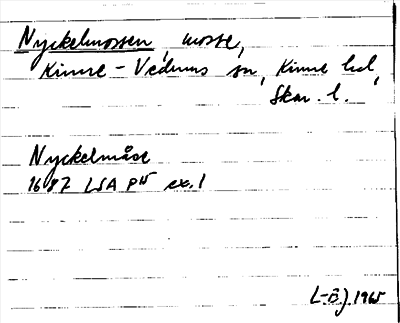 Nyckelmossen, mosse,
Kinne-Vedums sn, Kinne hd,
Skar. l.
Nyckelmåse
1687 LSA P15 ex. 1
L-B J 1965